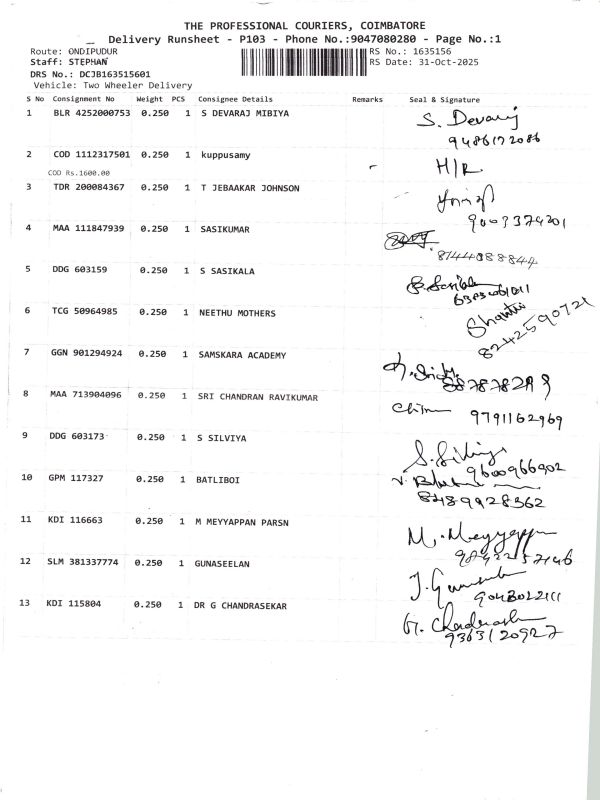 THE PROFESSIONAL COURIERS, COIMBATORE
Delivery Runsheet - P103 - Phone No.:9047080280 - Page No.:1
Route: ONDIPUDUR RS No.: 1635156
Staff: STEPHAN RS Date: 31-Oct-2025
DRS No.: DCJB163515601
Vehicle: Two Wheeler Delivery
S No Consignment No Weight PCS Consignee Details Remarks Seal & Signature
1 BLR 4252000753 0.250 1 S DEVARAJ MIBIYA S. Devaraj
9486172086
2 COD 1112317501 0.250 1 kuppusamy H/R
COD Rs.1600.00
3 TDR 200084367 0.250 1 T JEBAAKAR JOHNSON
9003374201
4 MAA 111847939 0.250 1 SASIKUMAR
8144088844
5 DDG 603159 0.250 1 S SASIKALA S. Sasikala
6 TCG 50964985 0.250 1 NEETHU MOTHERS Shanthi
8242590721
7 GGN 901294924 0.250 1 SAMSKARA ACADEMY
8 MAA 713904096 0.250 1 SRI CHANDRAN RAVIKUMAR
9791162969
9 DDG 603173 0.250 1 S SILVIYA S. Silviya
9600966902
10 GPM 117327 0.250 1 BATLIBOI
8489928362
11 KDI 116663 0.250 1 M MEYYAPPAN PARSN M. Meyyappan
12 SLM 381337774 0.250 1 GUNASEELAN
13 KDI 115804 0.250 1 DR G CHANDRASEKAR G. Chandrasekar
9363120927